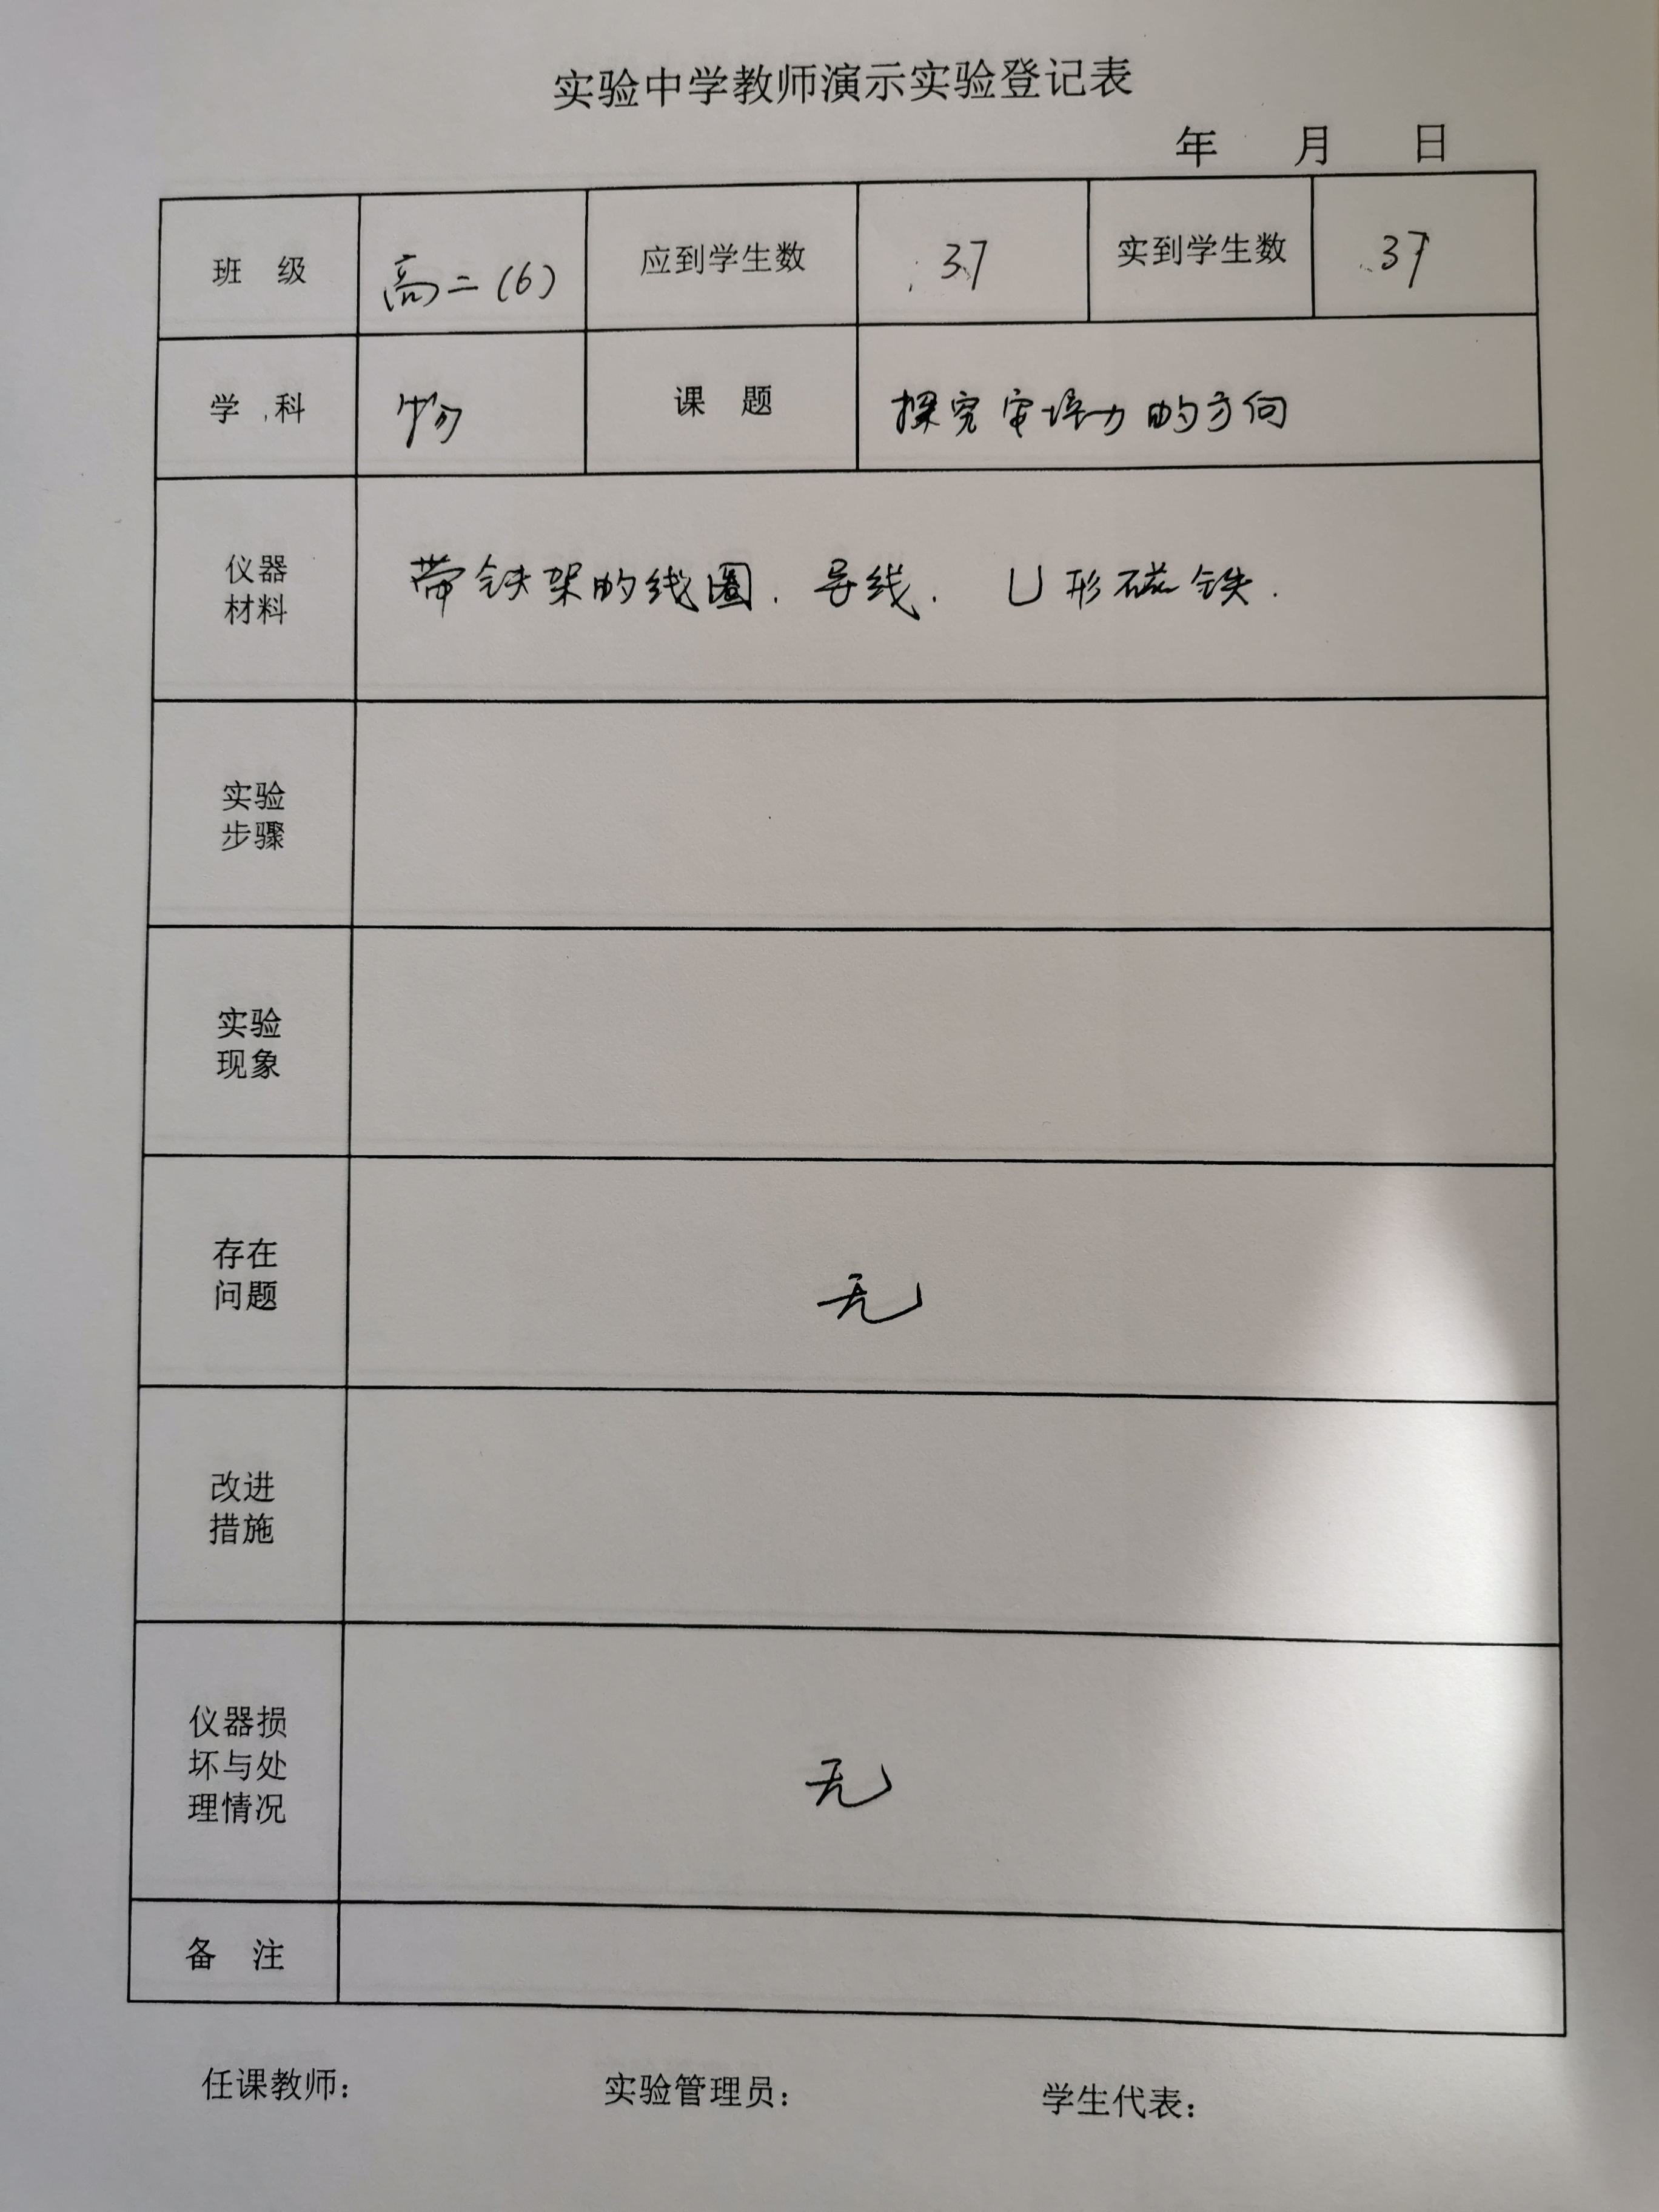 实验中学教师演示实验登记表
年 月 日
班 级 高二(6) 应到学生数 37 实到学生数 37
学 科 物 课 题 探究安培力的方向
仪器
材料
带铁架的线圈. 导线. U形磁铁.
实验
步骤
实验
现象
存在
问题
无
改进
措施
仪器损
坏与处
理情况
无
备 注
任课教师: 实验管理员: 学生代表: